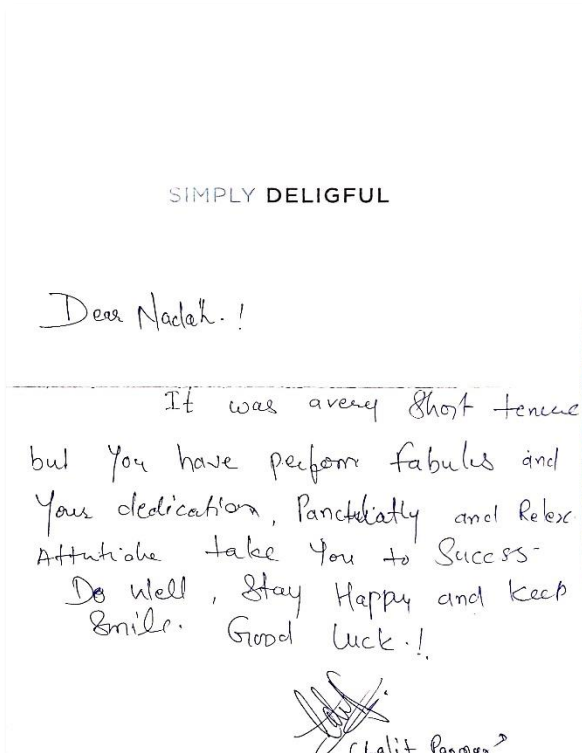 SIMPLY DELIGFUL
Dear Nadah.!
It was avery Short tenure
but You have perform fabules and
Your dedication, Panctuliatly and Relex
Attutiohe take You to Success-
Do Well, Stay Happy and Keep
Smile. Good Luck.!
(Lalit Parmar)